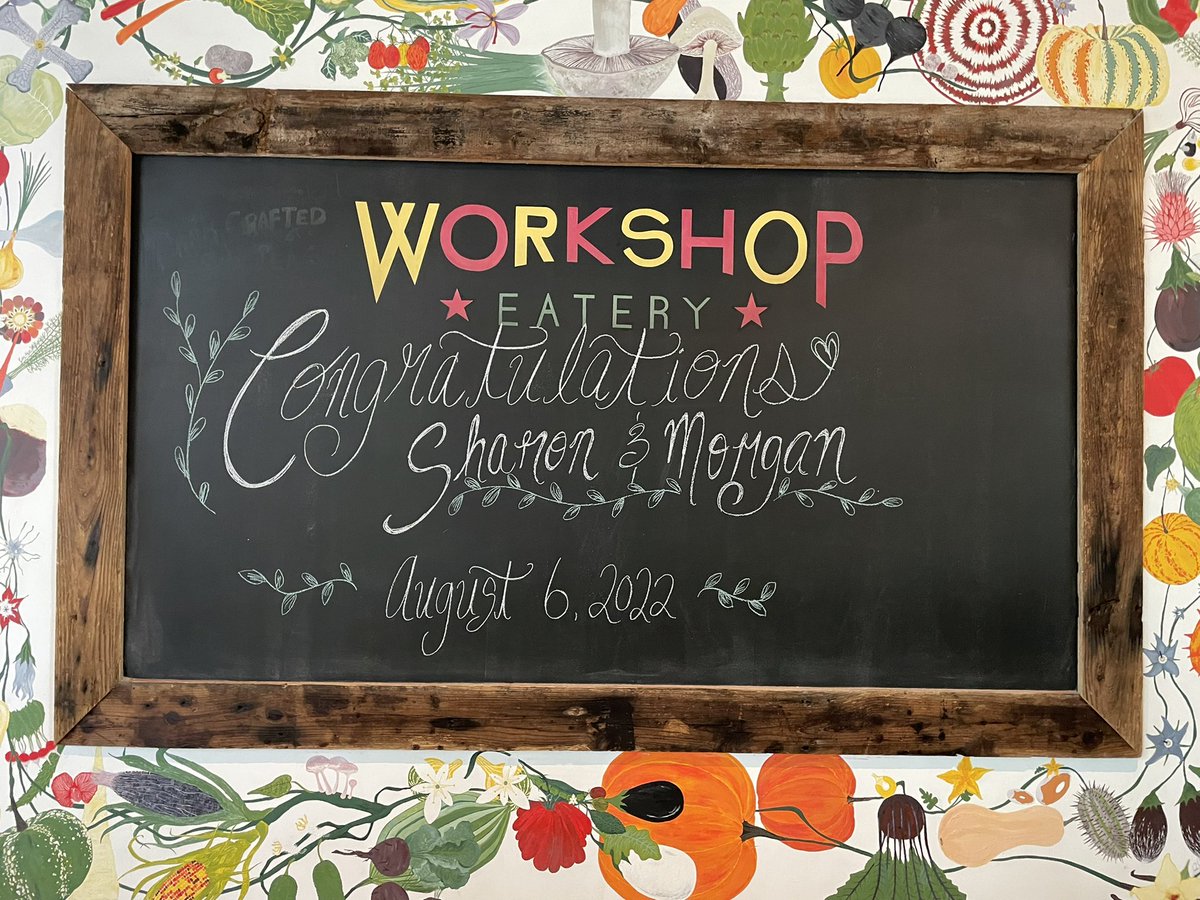 CRAFTED
WORKSHOP
EATERY
Congratulations
Sharon & Morgan
August 6, 2022